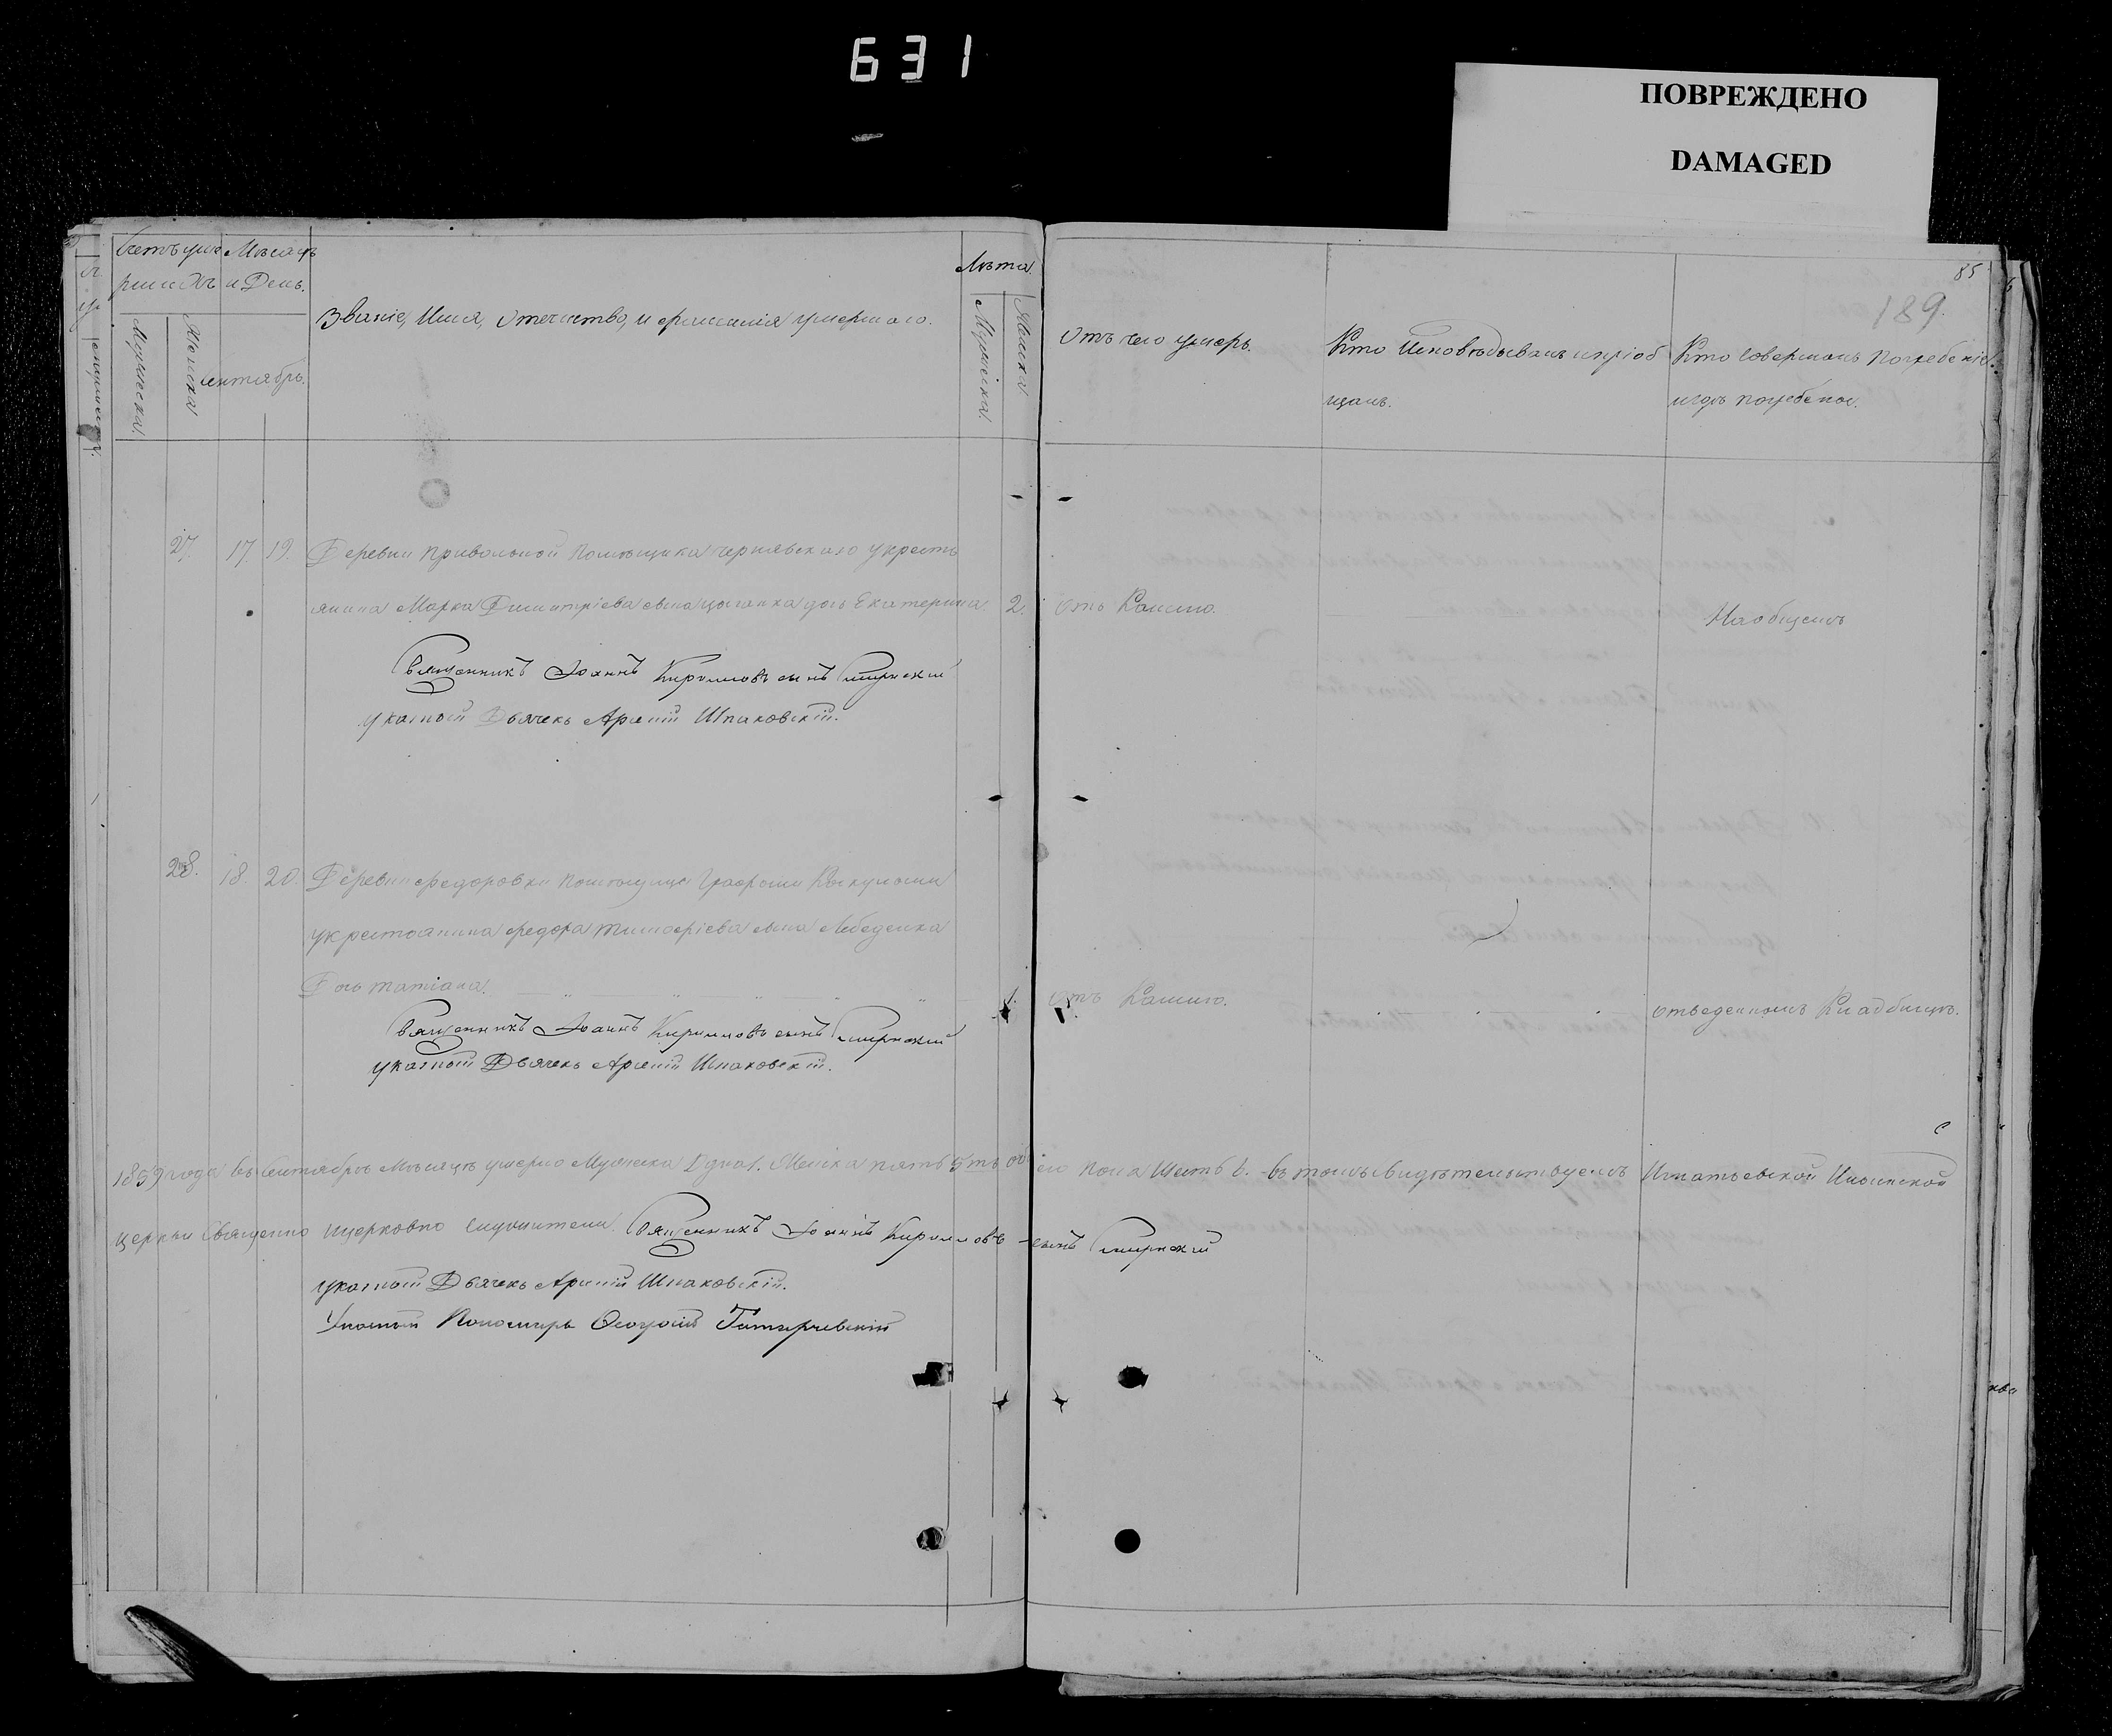 631
ПОВРЕЖДЕНО
DAMAGED
85
189.
Счетъ уме Мѣсяцъ
ршихъ и День.
Лѣта.
Званіе, Имя, Отечество, и фамилія умершаго.
Отъ чего умеръ.
Кто Исповѣдывалъ и пріоб
щалъ.
Кто Совершалъ Погребеніе
и гдѣ погребенъ.
Мужеска. Женска
Сентябрь.
Мужеска. Женска
27. 17. 19. Деревни Привольной Помѣщика Чернявскаго у кресть
янина Марка Димитріева сына Цыганка дочь Екатерина. 2. Отъ Кашлю. На общемъ
Священникъ Іоаннъ Кирилловъ сынъ
указный Дьячекъ Арсеній Шпаковскій.
28. 18. 20. Деревни Федоровки помѣщицы Графини
у крестьянина Федора Тимофіева сына Лебеденка
Дочь Татіана. 1. Отъ Кашлю. отведенномъ Кладбищѣ.
Священникъ Іоаннъ Кирилловъ сынъ
указный Дьячекъ Арсеній Шпаковскій.
1859 года въ Сентябрѣ Мѣсяцѣ умерло Мужеска 1. Женска пять 5 обоего пола Шесть 6. въ томъ свидѣтельствуемъ Игнатьевской
церкви Священно и церковно служители. Священникъ Іоаннъ Кирилловъ сынъ
указный Дьячекъ Арсеній Шпаковскій.
Указный Пономарь